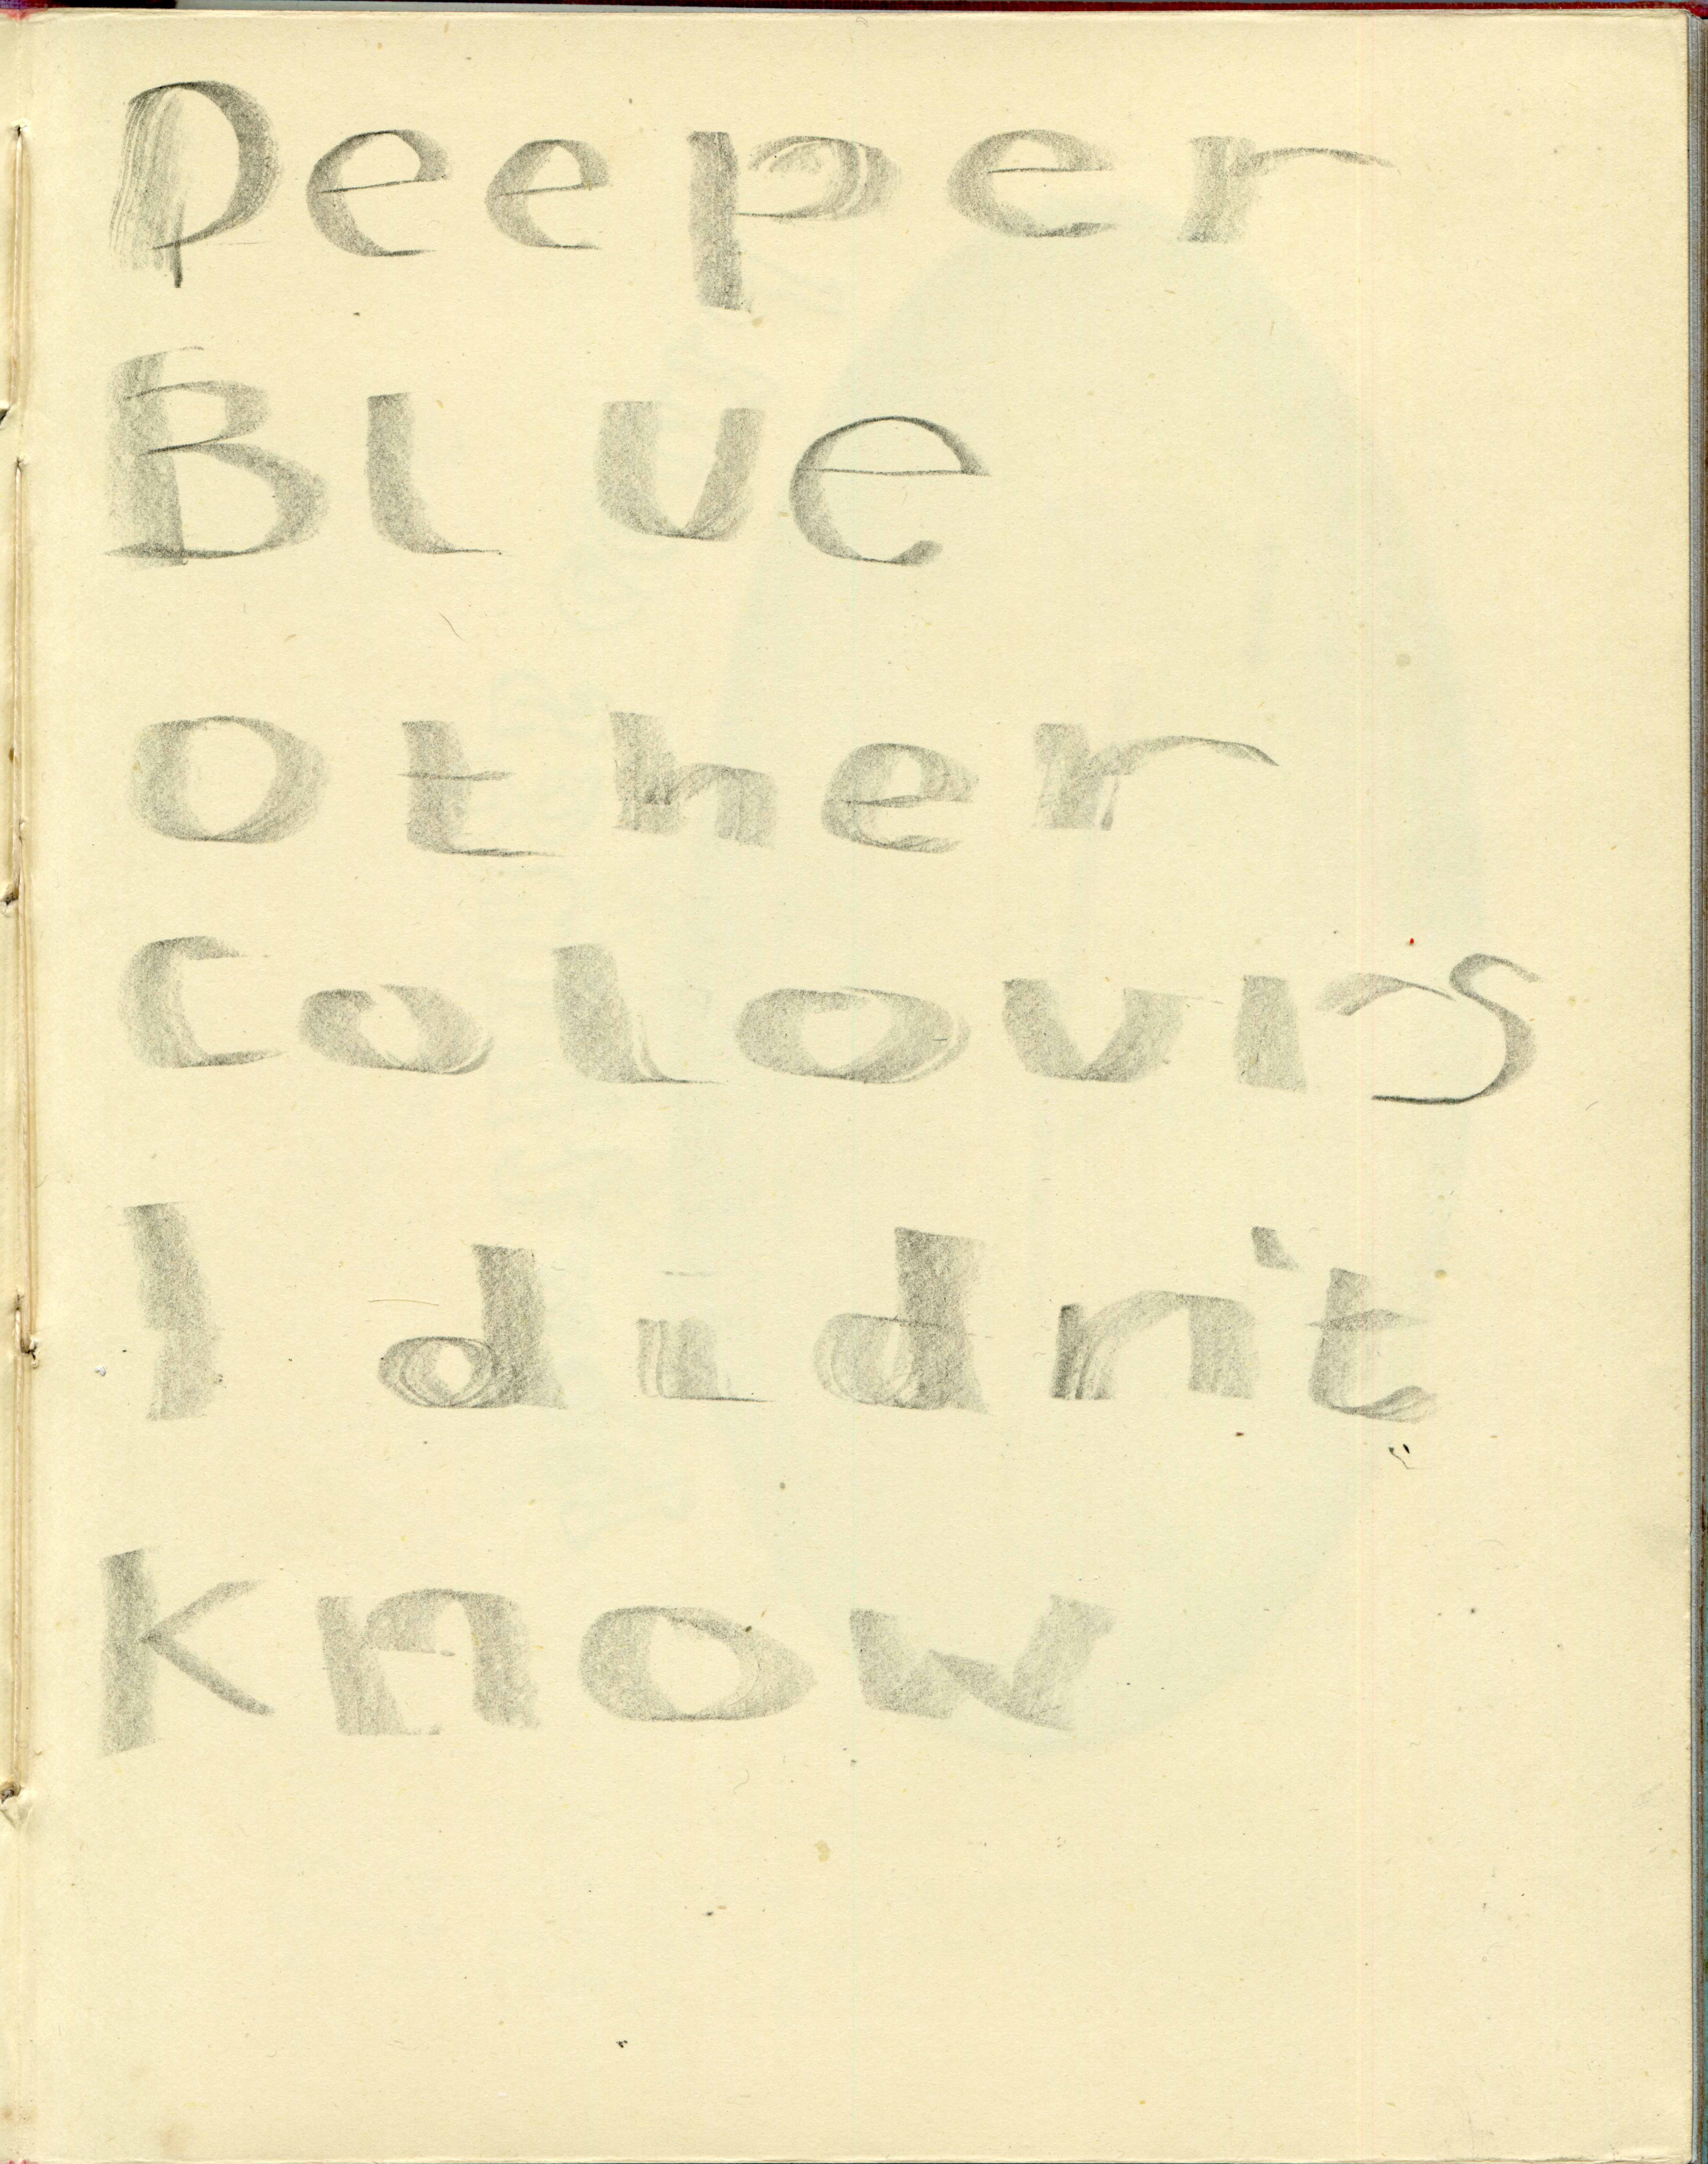 Deeper
Blue
other
Colours
I didn't
Know